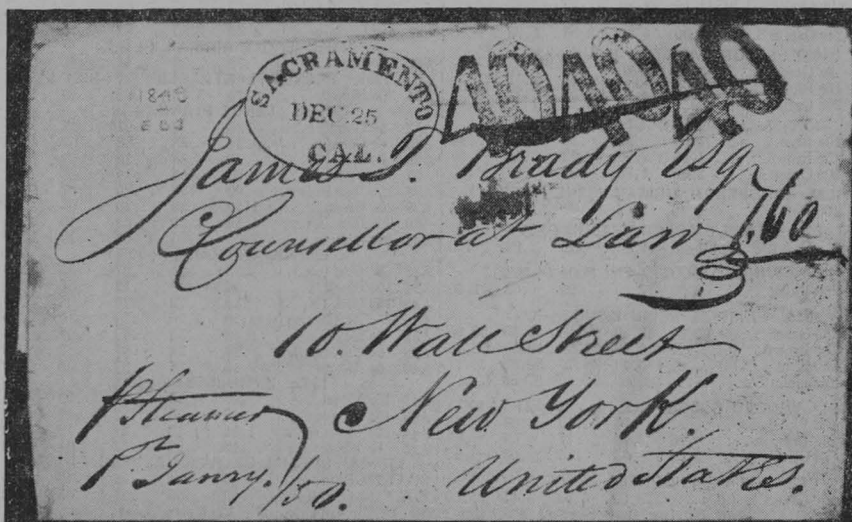 SACRAMENTO
DEC. 25
CAL.
40 40 40
James T. Brady Esq
Counsellor at Law
7.60
10. Wall Street
New York.
United States.
p Steamer
Janry. /50.